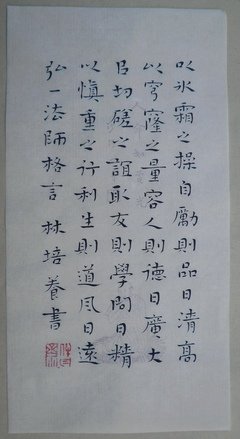 以冰霜之操自勵則品日清高
以穹窿之量容人則德日廣大
以切磋之誼取友則學問日精
以慎重之行利生則道风日遠
弘一法師格言 林培養書